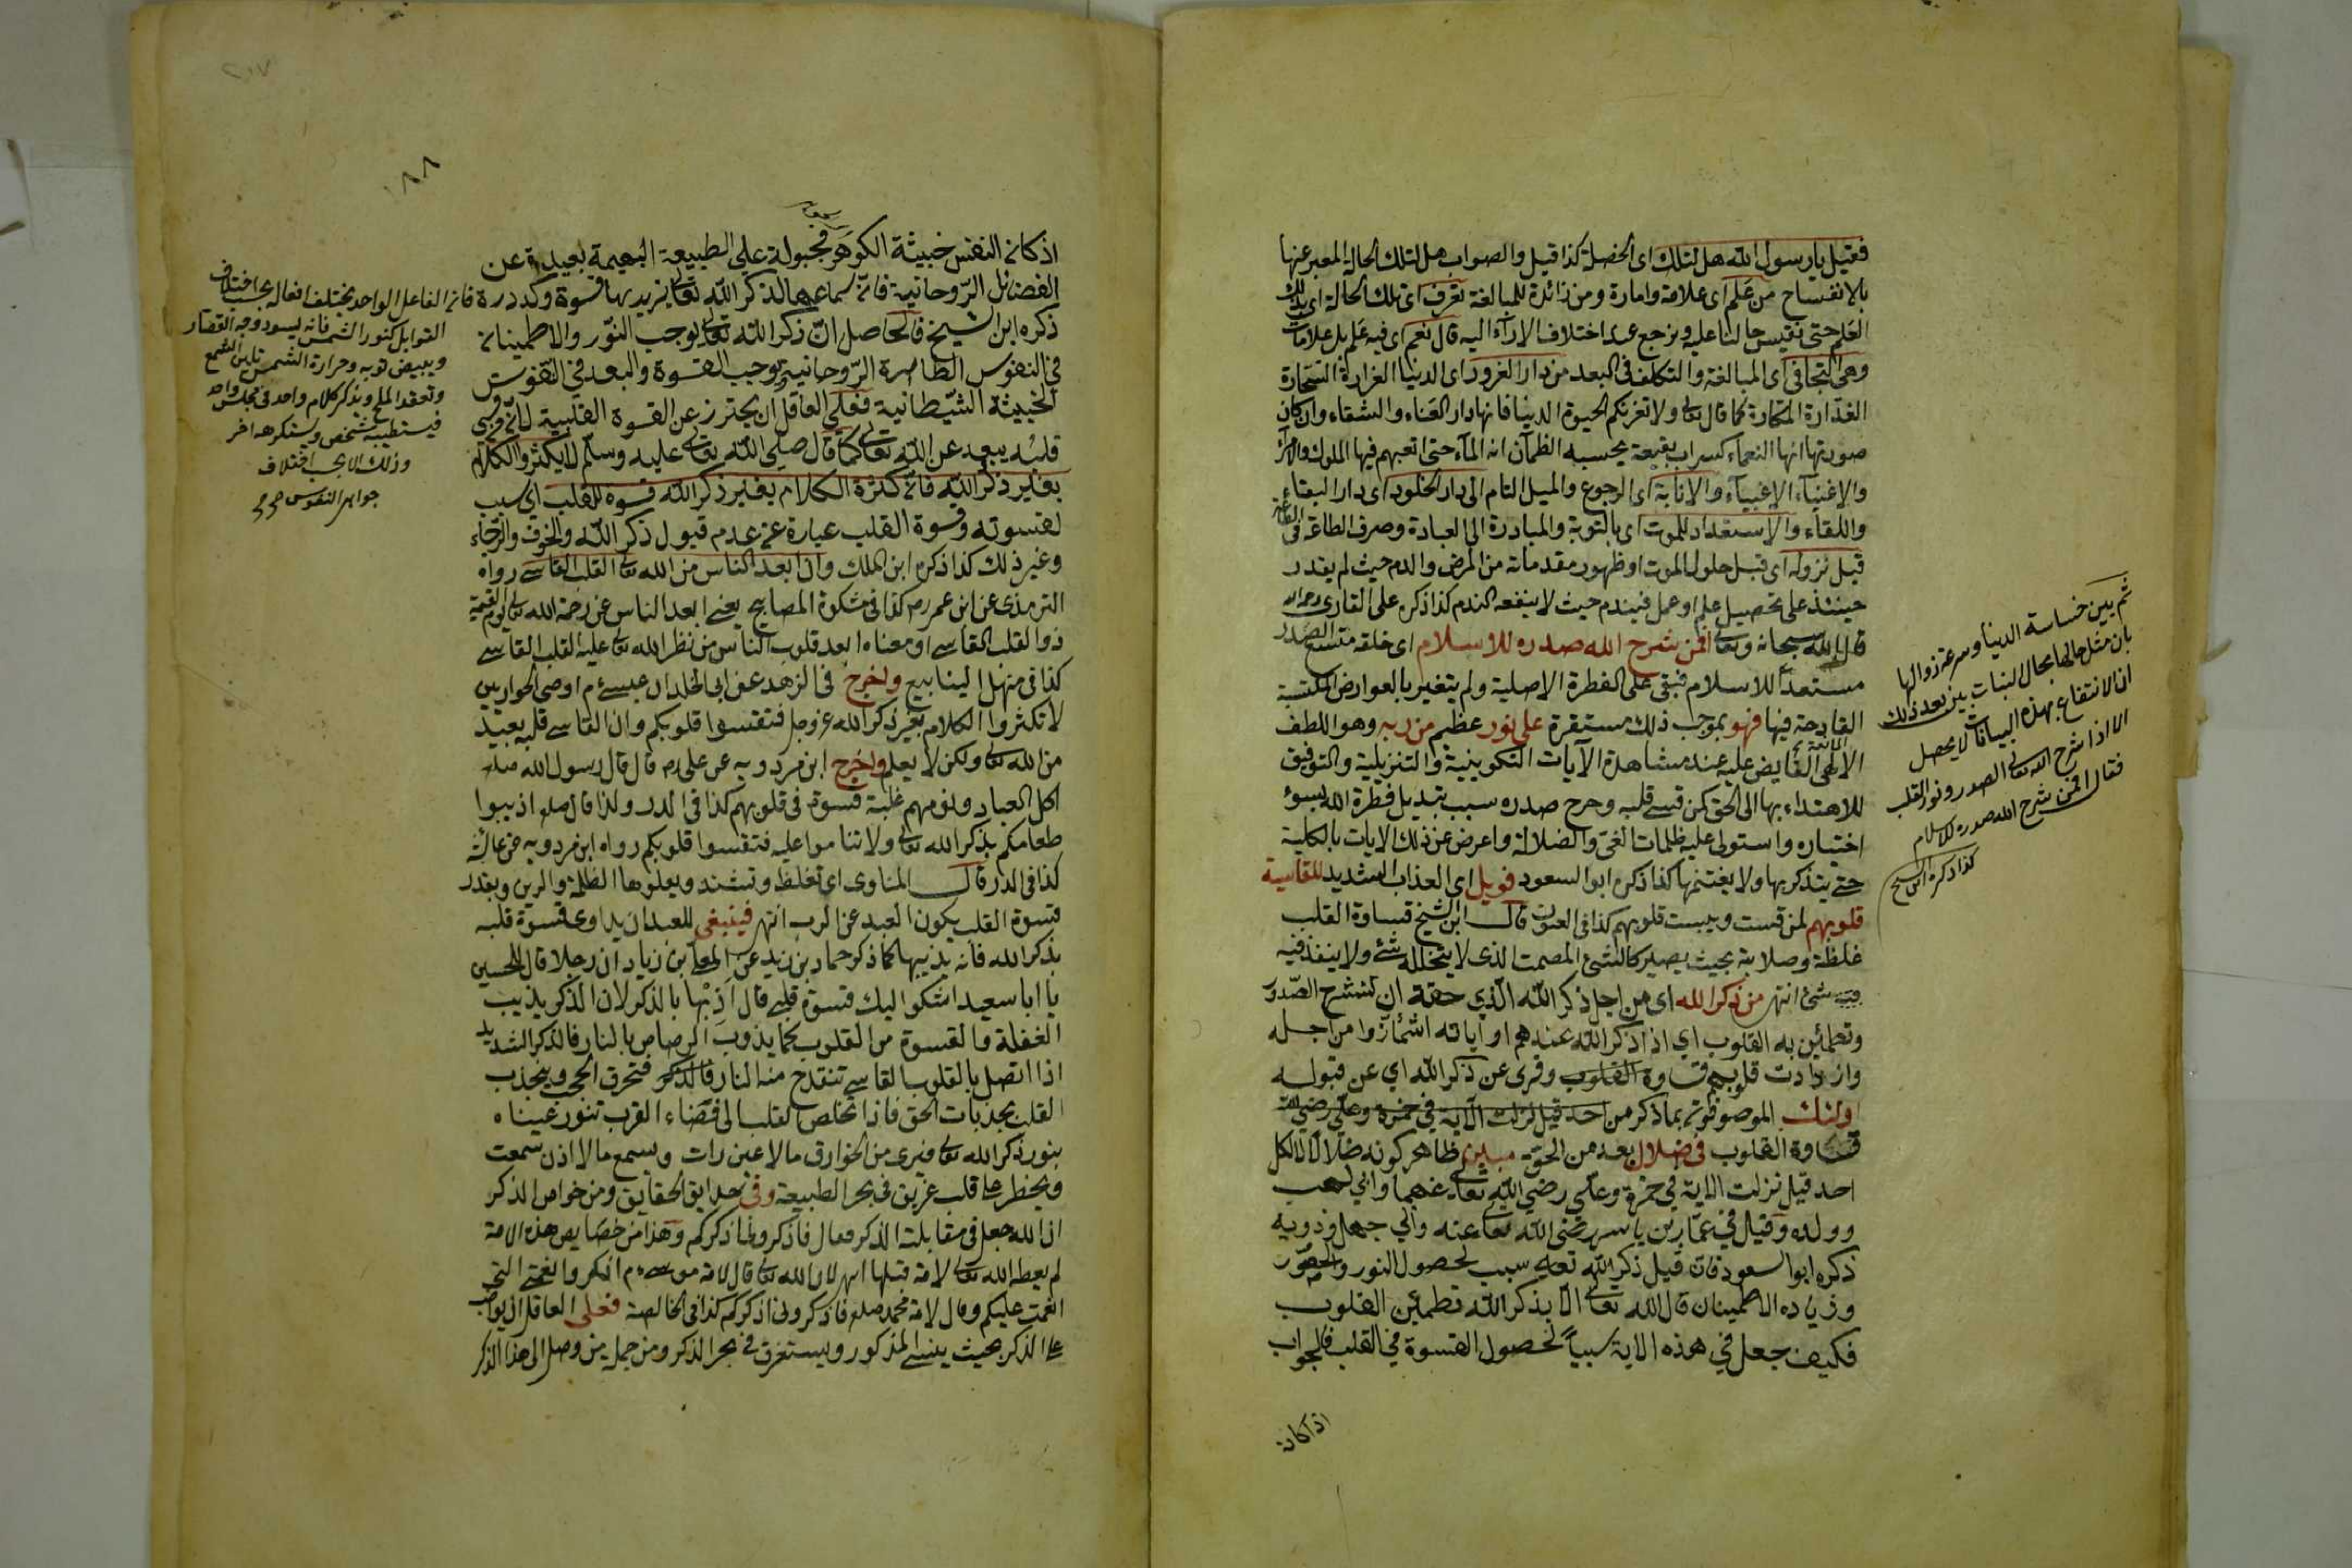 فقيل يا رسول الله هل لتلك اى الخصلة كذا قيل والصواب هل لتلك الحالة المعبر عنها
بالانفساح من علم اى علامة وامارة ومن زائدة للمبالغة تعرف اى تلك الحالة اى بذلك
العلم حتى نقيس حالنا عليه ونرجع عند اختلاف الاراء اليه قال نعم اى فيه علم بل علامات
وهى التجافى اى المبالغة والتكلف فى البعد من دار الغرور اى الدنيا الغرارة السحارة
الغدارة المكارة كما قال تعالى ولا تغرنكم الحيوة الدنيا فانها دار العناء والشقاء وان كان
صورتها انها النعماء كسراب بقيعة يحسبه الظمآن انه الماء حتى اتعبهم فيها الملوك والامراء
والاغنياء الاغبياء والانابة اى الرجوع والميل التام الى دار الخلود اى دار البقاء
واللقاء والاستعداد للموت اى بالتوبة والمبادرة الى العبادة وصرف الطاقة فى الطاعة
قبل نزوله اى قبل حلول الموت او ظهور مقدماته من المرض والدم حيث لم يقدر
حينئذ على تحصيل علم او عمل فيندم حيث لا ينفعه الندم كذا ذكره على القارى رحمه الله
قال الله سبحانه وتعالى افمن شرح الله صدره للاسلام اى خلقه متسع الصدر
مستعدا للاسلام فبقى على الفطرة الاصلية ولم يتغير بالعوارض المكتسبة
القادحة فيها فهو بموجب ذلك مستقرة على نور عظيم من ربه وهو اللطف
الالهى الفايض عليه عند مشاهدة الآيات التكوينية والتنزيلية والتوفيق
للاهتداء بها الى الحق كمن قسى قلبه وحرج صدره سبب تبديل فطرة الله بسوء
اختياره واستولى عليه ظلمات الغى والضلالة واعرض عن ذلك الايات بالكلية
حتى يتذكر بها ولا يغتنمها كذا ذكره ابو السعود فويل اى العذاب الشديد للقاسية
قلوبهم لمن قست ويبست قلوبهم كذا فى العيون قال ابن الشيخ قساوة القلب
غلظة وصلابة بحيث يصير كالشئ المصمت الذى لا يتخلله شئ ولا ينفذ فيه
شئ انتهى من ذكر الله اى من اجل ذكر الله الذي حقه ان تنشرح الصدر
وتطمئن به القلوب اي اذا ذكر الله عندهم او آياته اشمأزوا من اجله
وازدادت قلوبهم قساوة القلوب وقرى عن ذكر الله اي عن قبوله
اولئك الموصوفون بما ذكر من احد قيل نزلت الآية في حمزة وعلى رضى الله
قساوة القلوب فى ضلال بعد من الحق مبين ظاهر كونه ضلالا لكل
احد قيل نزلت الاية في حمزة وعلى رضي الله تعالى عنهما وابي لهب
وولده وقيل في عمار بن ياسر رضى الله تعالى عنه وابي جهل وذويه
ذكره ابو السعود فان قيل ذكر الله تعالى سبب لحصول النور والحضور
وزياده الاطمينان قال الله تعالى الا بذكر الله تطمئن القلوب
فكيف جعل في هذه الاية سبباً لحصول القسوة في القلب فالجواب
اذ كان
ثم بين خساسة الدنيا وسرعة زوالها
بان مثل حالها بحال النبات بين بعد ذلك
ان الانتفاع بهذه البيانات لا يحصل
الا اذا شرح الله تعالى الصدر ونور القلب
فقال افمن شرح الله صدره للاسلام
كذا ذكره ابن الشيخ
١٨٨
اذ كان النفس خبيثة الجوهر مجبولة على الطبيعة البهيمة بعيدة عن
الفضائل الروحانية فان سماعها لذكر الله تعالى يزيد بها قسوة وكدرة
ذكره ابن الشيخ فالحاصل ان ذكر الله تعالى يوجب النور والاطمينان
في النفوس الطاهرة الروحانية ويوجب القسوة والبعد في النفوس
الخبيثة الشيطانية فعلى العاقل ان يحترز عن القسوة القلبية لان قسى
قلبه يبعد عن الله تعالى كما قال صلى الله تعالى عليه وسلم لا يكثروا الكلام
بغير ذكر الله فان كثرة الكلام بغير ذكر الله قسوة للقلب اي سبب
لقسوته وقسوة القلب عبارة عن عدم قبول ذكر الله والخوف والرجاء
وغير ذلك كذا ذكره ابن الملك وان ابعد الناس من الله تعالى القلب القاسى رواه
الترمذى عن ابن عمر رض كذا فى مشكوة المصابيح يعنى ابعد الناس عن رحمة الله تعالى يوم القيمة
ذو القلب القاسى او معناه ابعد قلوب الناس من نظر الله تعالى عليه القلب القاسى
كذا فى منهل الينابيع واخرج فى الزهد عن ابى الخلد ان عيسى م اوصى الحواريين
لا تكثروا الكلام بغير ذكر الله عز وجل فتقسوا قلوبكم وان القاسى قلبه بعيد
من الله تعالى ولكن لا يعلم واخرج ابن مردويه عن على رض قال قال رسول الله صلعم
اكل العباد ونومهم غلبة قسوة فى قلوبهم كذا فى الدر ولذا قال صلعم اذيبوا
طعامكم بذكر الله تعالى ولا تناموا عليه فتقسوا قلوبكم رواه ابن مردويه عن عائشة
كذا فى الدر قال المناوى اى تغلظ وتشتد ويعلوها الظلمة والرين وبقدر
قسوة القلب يكون العبد عن الرب انتهى فينبغى للعبد ان يداوى قسوة قلبه
بذكر الله فانه يذيبها كما ذكر حماد بن زيد عن المعلى بن زياد ان رجلا قال للحسين
يا ابا سعيد اشكوا اليك قسوة قلبى قال اذبها بالذكر لان الذكر يذيب
الغفلة والقسوة من القلوب كما يذوب الرصاص بالنار فالذكر الشديد
اذا اتصل بالقلوب القاسى تنقدح منه النار فالذكر فتحرق الحجب وينجذب
القلب بجذبات الحق فاذا تخلص القلب الى فضاء القرب تنور عيناه
بنور ذكر الله تعالى فيرى من الخوارق ما لا عين رات ويسمع ما لا اذن سمعت
ويخطر على قلب غريق فى بحر الطبيعة وفى حدايق الحقايق ومن خواص الذكر
ان الله جعل فى مقابلته الذكر فقال فاذكرونى اذكركم وهذا من خصايص هذه الامة
لم يعطه الله تعالى لامة قبلها انتهى لان الله تعالى قال لامة موسى م اذكروا نعمتى التى
انعمت عليكم وقال لامة محمد صلعم فاذكرونى اذكركم كذا فى الخالصة فعلى العاقل ان يواظب
على الذكر بحيث ينسى المذكور ويستغرق فى بحر الذكر ومن جملة من وصل الى هذا الذكر
فان الفاعل الواحد يختلف افعاله بحسب اختلاف
القوابل كنور الشمس فانه يسود وجه القصار
ويبيض ثوبه وحرارة الشمس تلين الشمع
وتعقد الملح ويذكر كلام واحد فى مجلس واحد
فيستطيبه شخص ويستكرهه اخر
وذلك الا بحسب اختلاف
جواهر النفوس